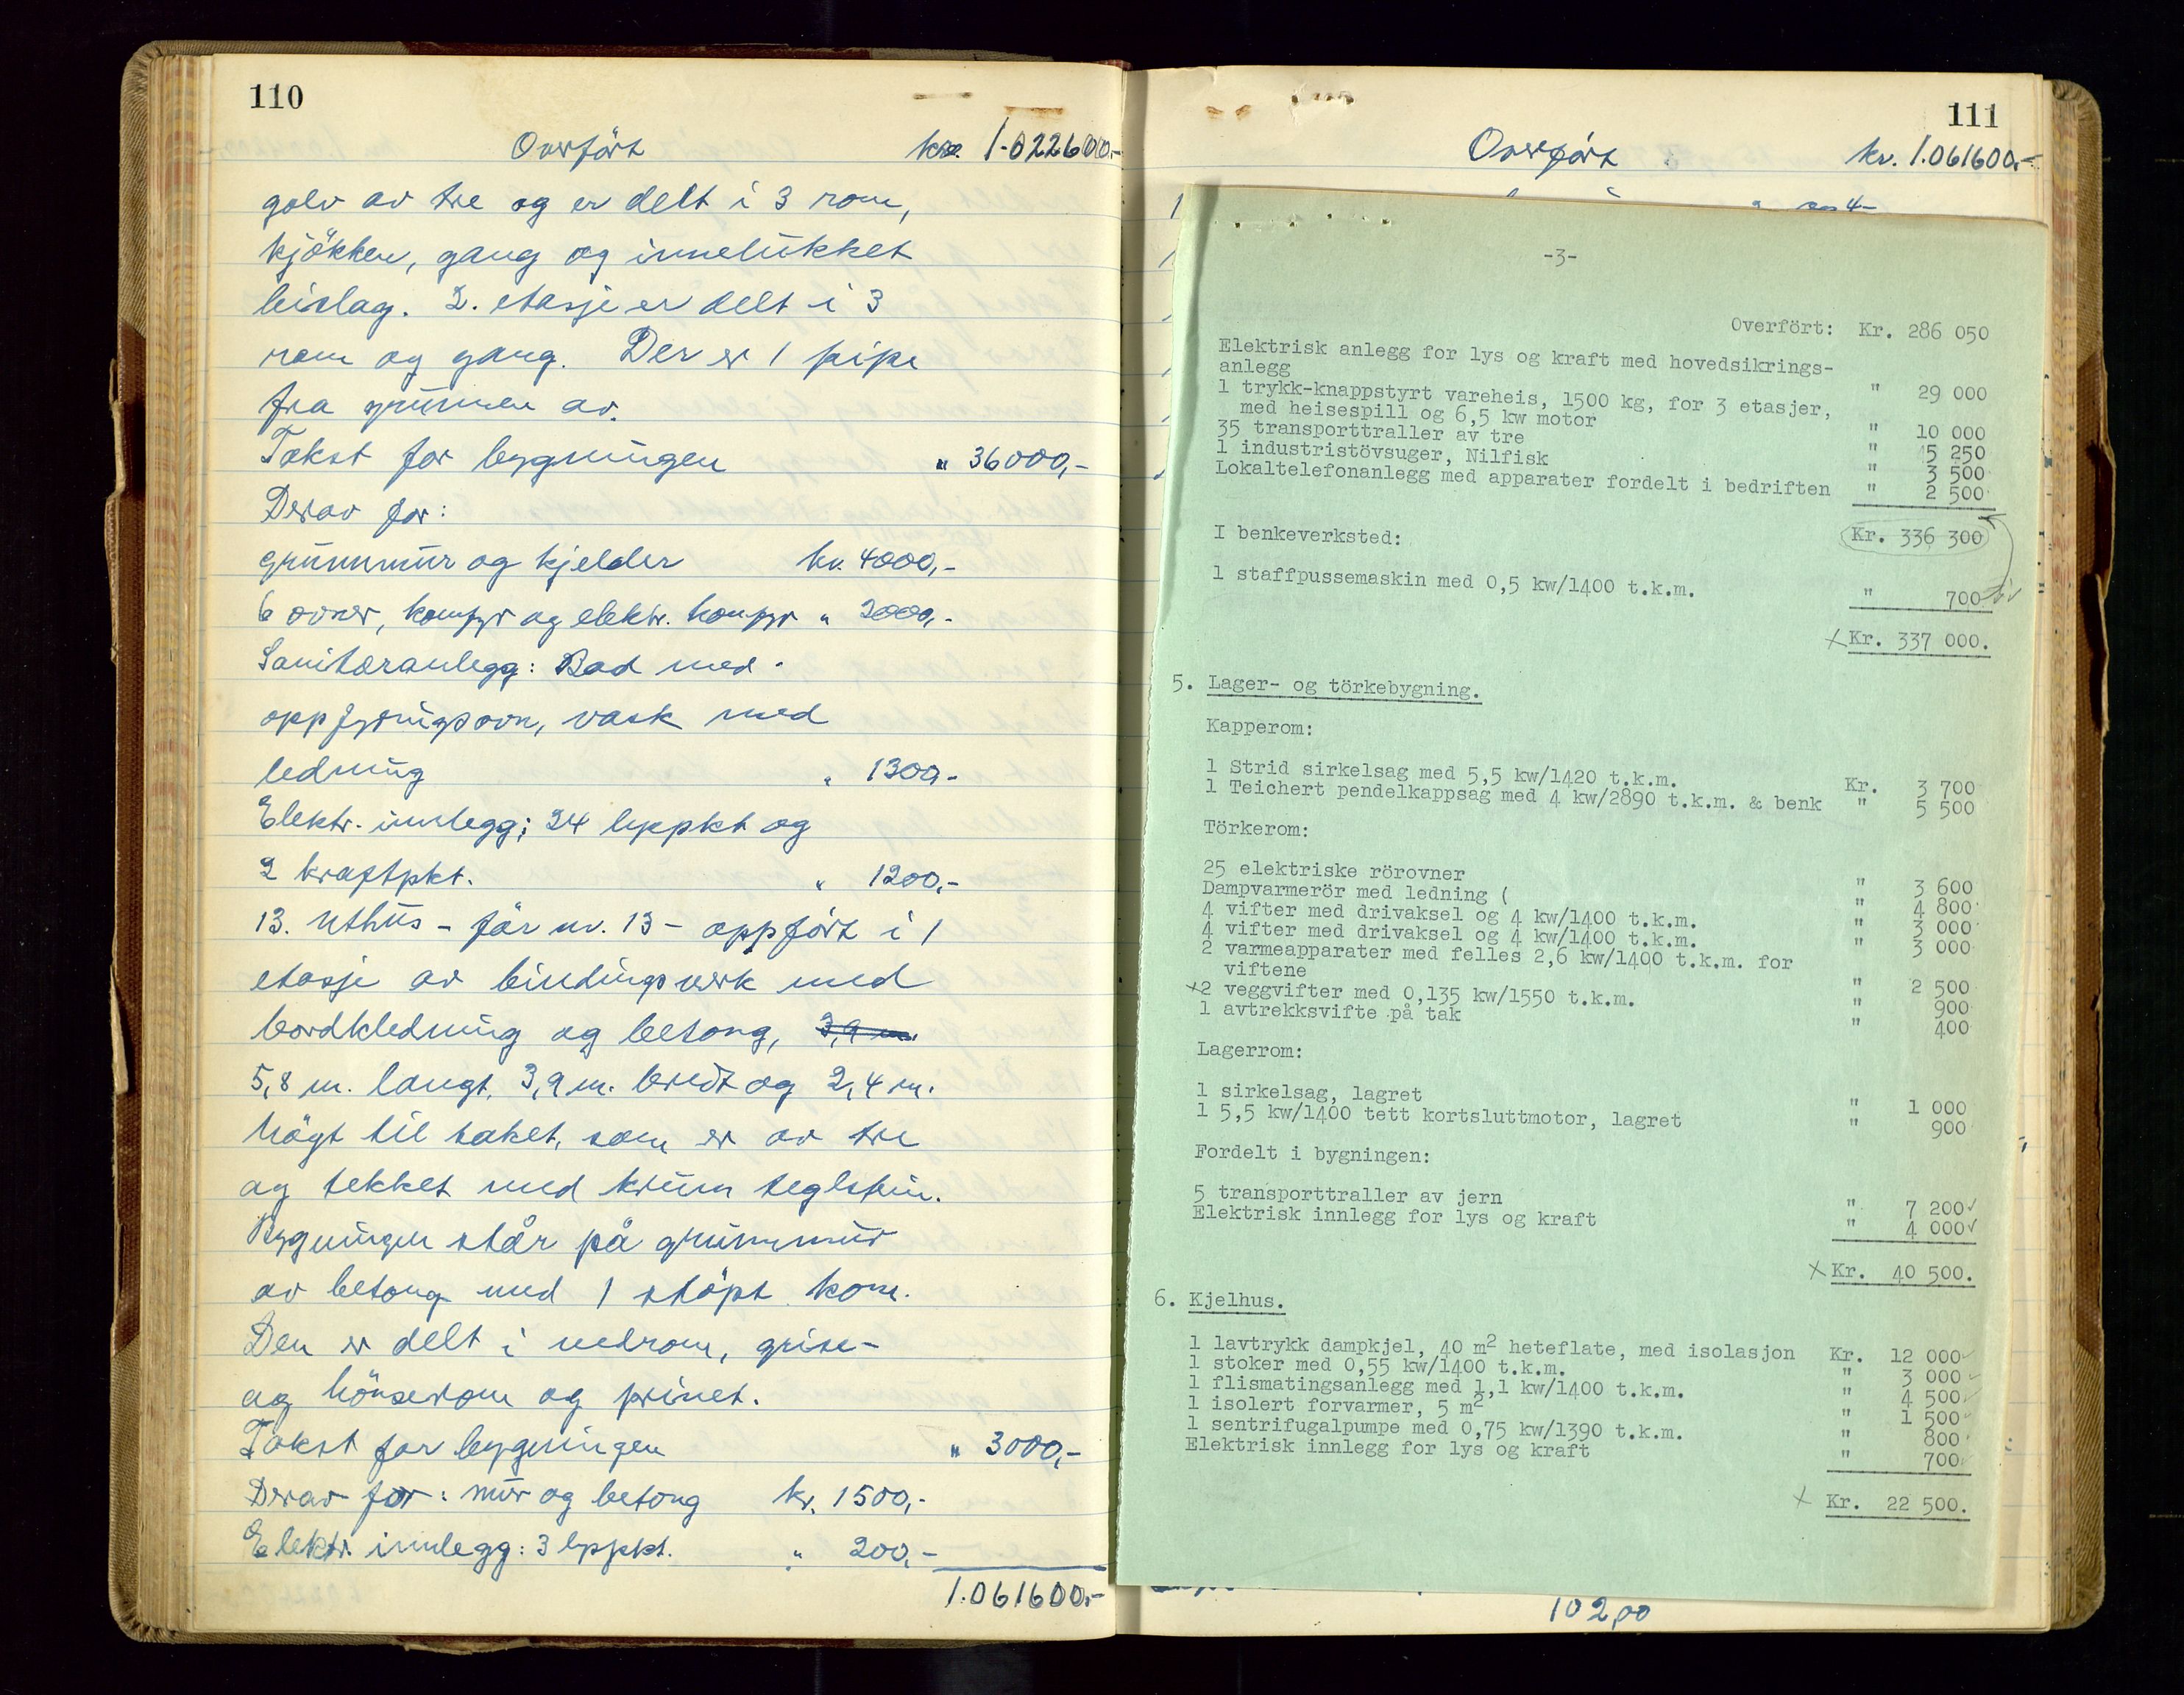 110
Overfört kr. 1.022600,-
golv av tre og er delt i 3 rom,
kjökken, gang og innelukket
bislag. 2. etasje er delt i 3
rom og gang. Der er 1 pipe
fra grunnen av.
Takst for bygningen " 36000,-
Derav for:
grunnmur og kjelder kr. 4000,-
6 ovner, komfyr og elektr. komfyr " 2000,-
Sanitæranlegg: Bad med
oppfyringsovn, vask med
ledning " 1300,-
Elektr. innlegg; 24 lyspkt og
2 kraftpkt. " 1200,-
13. Uthus - för nr. 13 - oppfört i 1
etasje av bindingsverk med
bordkledning og betong, 3,9 m.
5,8 m. langt, 3,9 m. bredt og 2,4 m.
högt til taket, som er av tre
og tekket med krum teglstein.
Bygningen står på grunnmur
av betong med 1 stöpt kom.
Den er delt i vedrom, grise-
og hönserom og privet.
Takst for bygningen " 3000,-
Derav for: mur og betong kr. 1500,-
Elektr. innlegg: 3 lyspkt. " 200,-
1.061600,-
111
Overfört kr. 1.061600,-
-3-
Overfört: Kr. 286 050
Elektrisk anlegg for lys og kraft med hovedsikrings-
anlegg " 29 000
1 trykk-knappstyrt vareheis, 1500 kg, for 3 etasjer,
med heisespill og 6,5 kw motor " 10 000
35 transporttraller av tre " 5 250
1 industristövsuger, Nilfisk " 3 500
Lokaltelefonanlegg med apparater fordelt i bedriften " 2 500
Kr. 336 300
I benkeverksted:
1 staffpussemaskin med 0,5 kw/1400 t.k.m. " 700
x Kr. 337 000.
5. Lager- og törkebygning.
Kapperom:
1 Strid sirkelsag med 5,5 kw/1420 t.k.m. Kr. 3 700
1 Teichert pendelkappsag med 4 kw/2890 t.k.m. & benk " 5 500
Törkerom:
25 elektriske rörovner " 3 600
Dampvarmerör med ledning ( " 4 800
4 vifter med drivaksel og 4 kw/1400 t.k.m. " 3 000
4 vifter med drivaksel og 4 kw/1400 t.k.m. " 3 000
2 varmeapparater med felles 2,6 kw/1400 t.k.m. for
viftene " 2 500
x2 veggvifter med 0,135 kw/1550 t.k.m. " 900
1 avtrekksvifte på tak " 400
Lagerrom:
1 sirkelsag, lagret " 1 000
1 5,5 kw/1400 tett kortsluttmotor, lagret " 900
Fordelt i bygningen:
5 transporttraller av jern " 7 200✓
Elektrisk innlegg for lys og kraft " 4 000✓
x Kr. 40 500.
6. Kjelhus.
1 lavtrykk dampkjel, 40 m² heteflate, med isolasjon Kr. 12 000✓
1 stoker med 0,55 kw/1400 t.k.m. " 3 000✓
1 flismatingsanlegg med 1,1 kw/1400 t.k.m. " 4 500✓
1 isolert forvarmer, 5 m² " 1 500✓
1 sentrifugalpumpe med 0,75 kw/1390 t.k.m. " 800
Elektrisk innlegg for lys og kraft " 700✓
x Kr. 22 500.
102,00